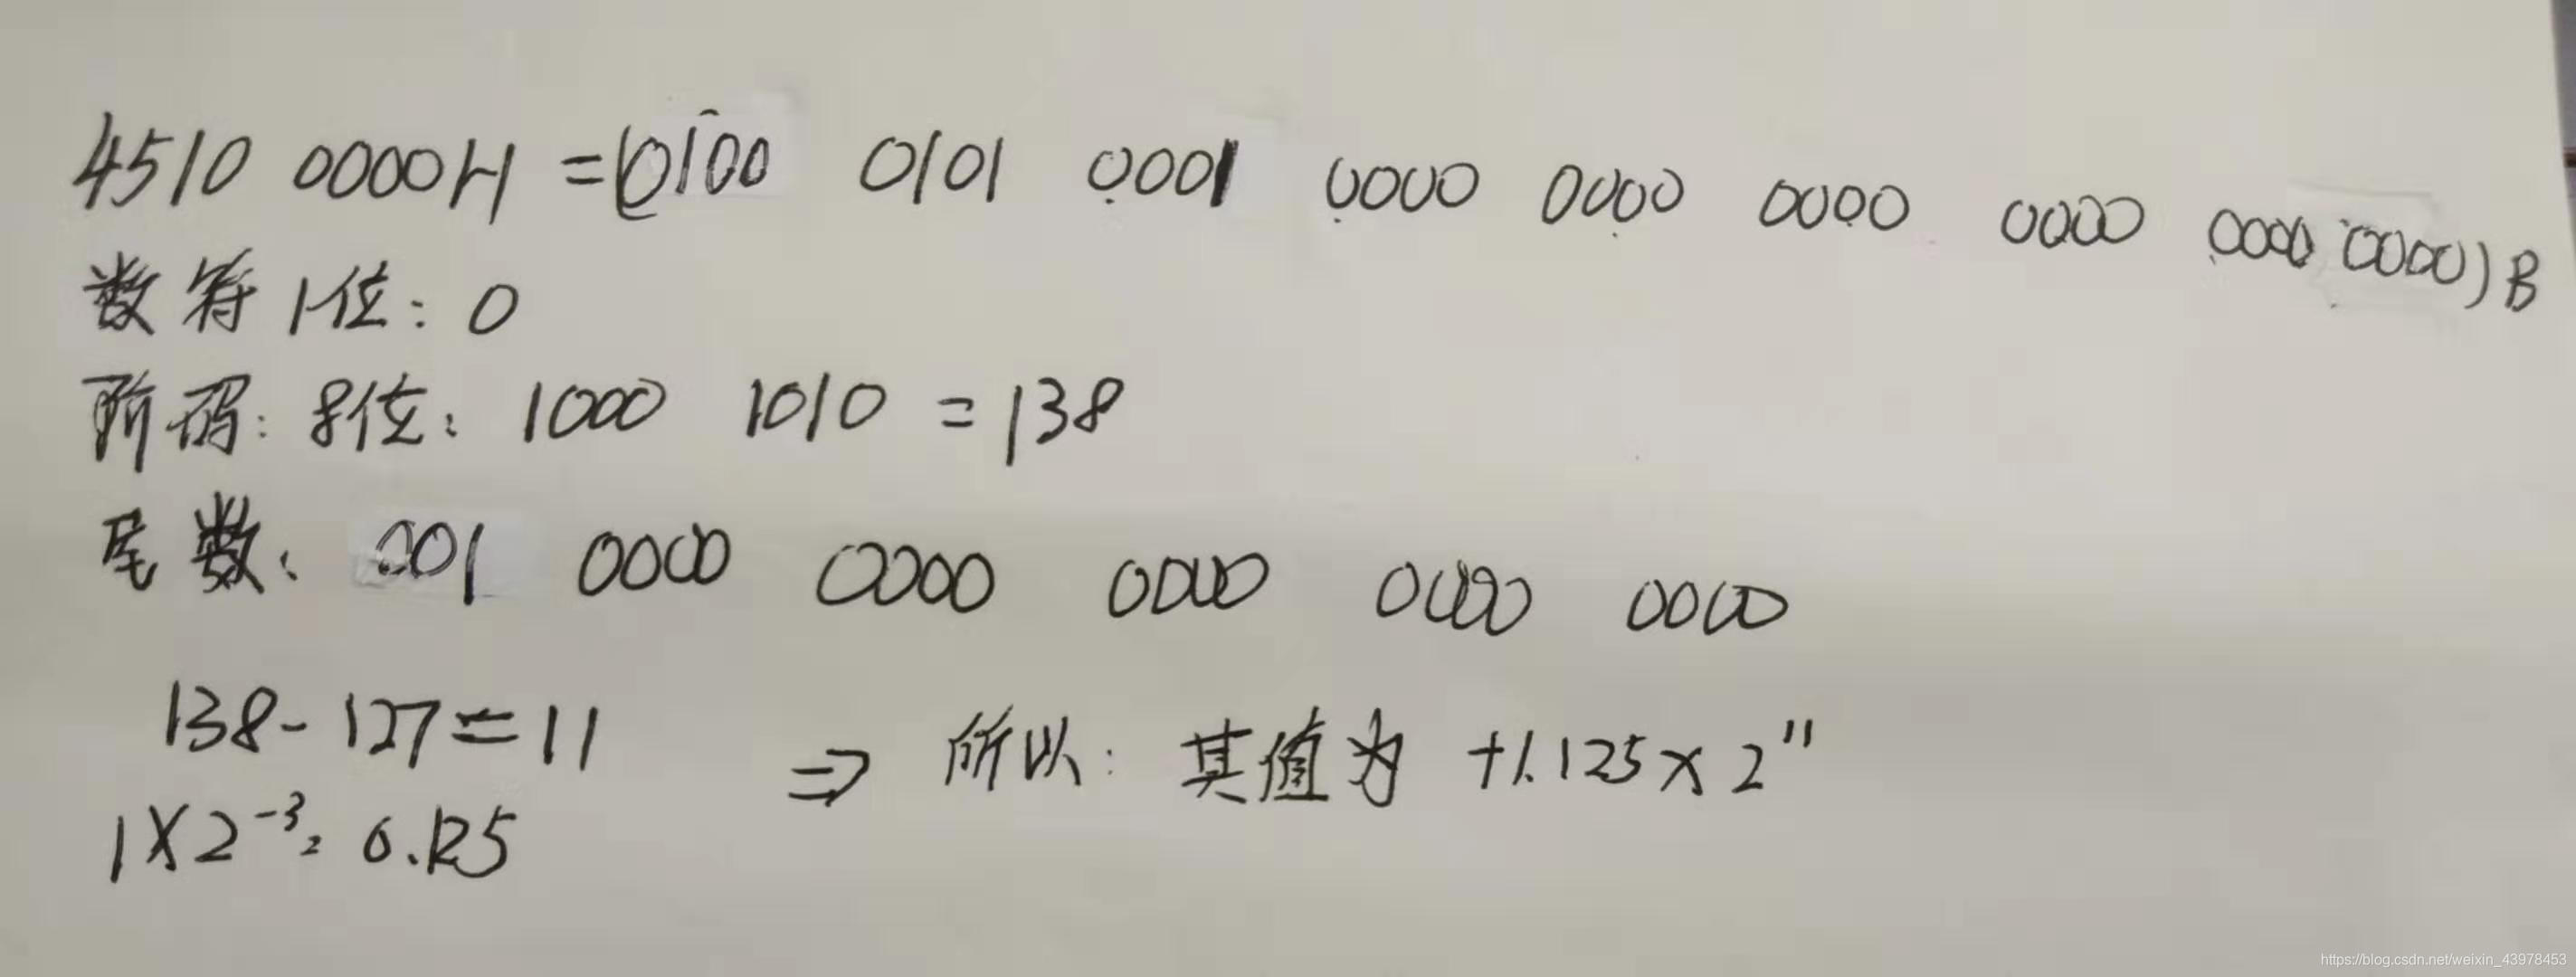 4510 0000H =(0100 0101 0001 0000 0000 0000 0000 0000 0000)B
数符1位: 0
阶码: 8位: 1000 1010 = 138
尾数: 001 0000 0000 0000 0000 0000
138-127=11 ⇒ 所以: 其值为 +1.125×2¹¹
1×2⁻³= 0.125
https://blog.csdn.net/weixin_43978453